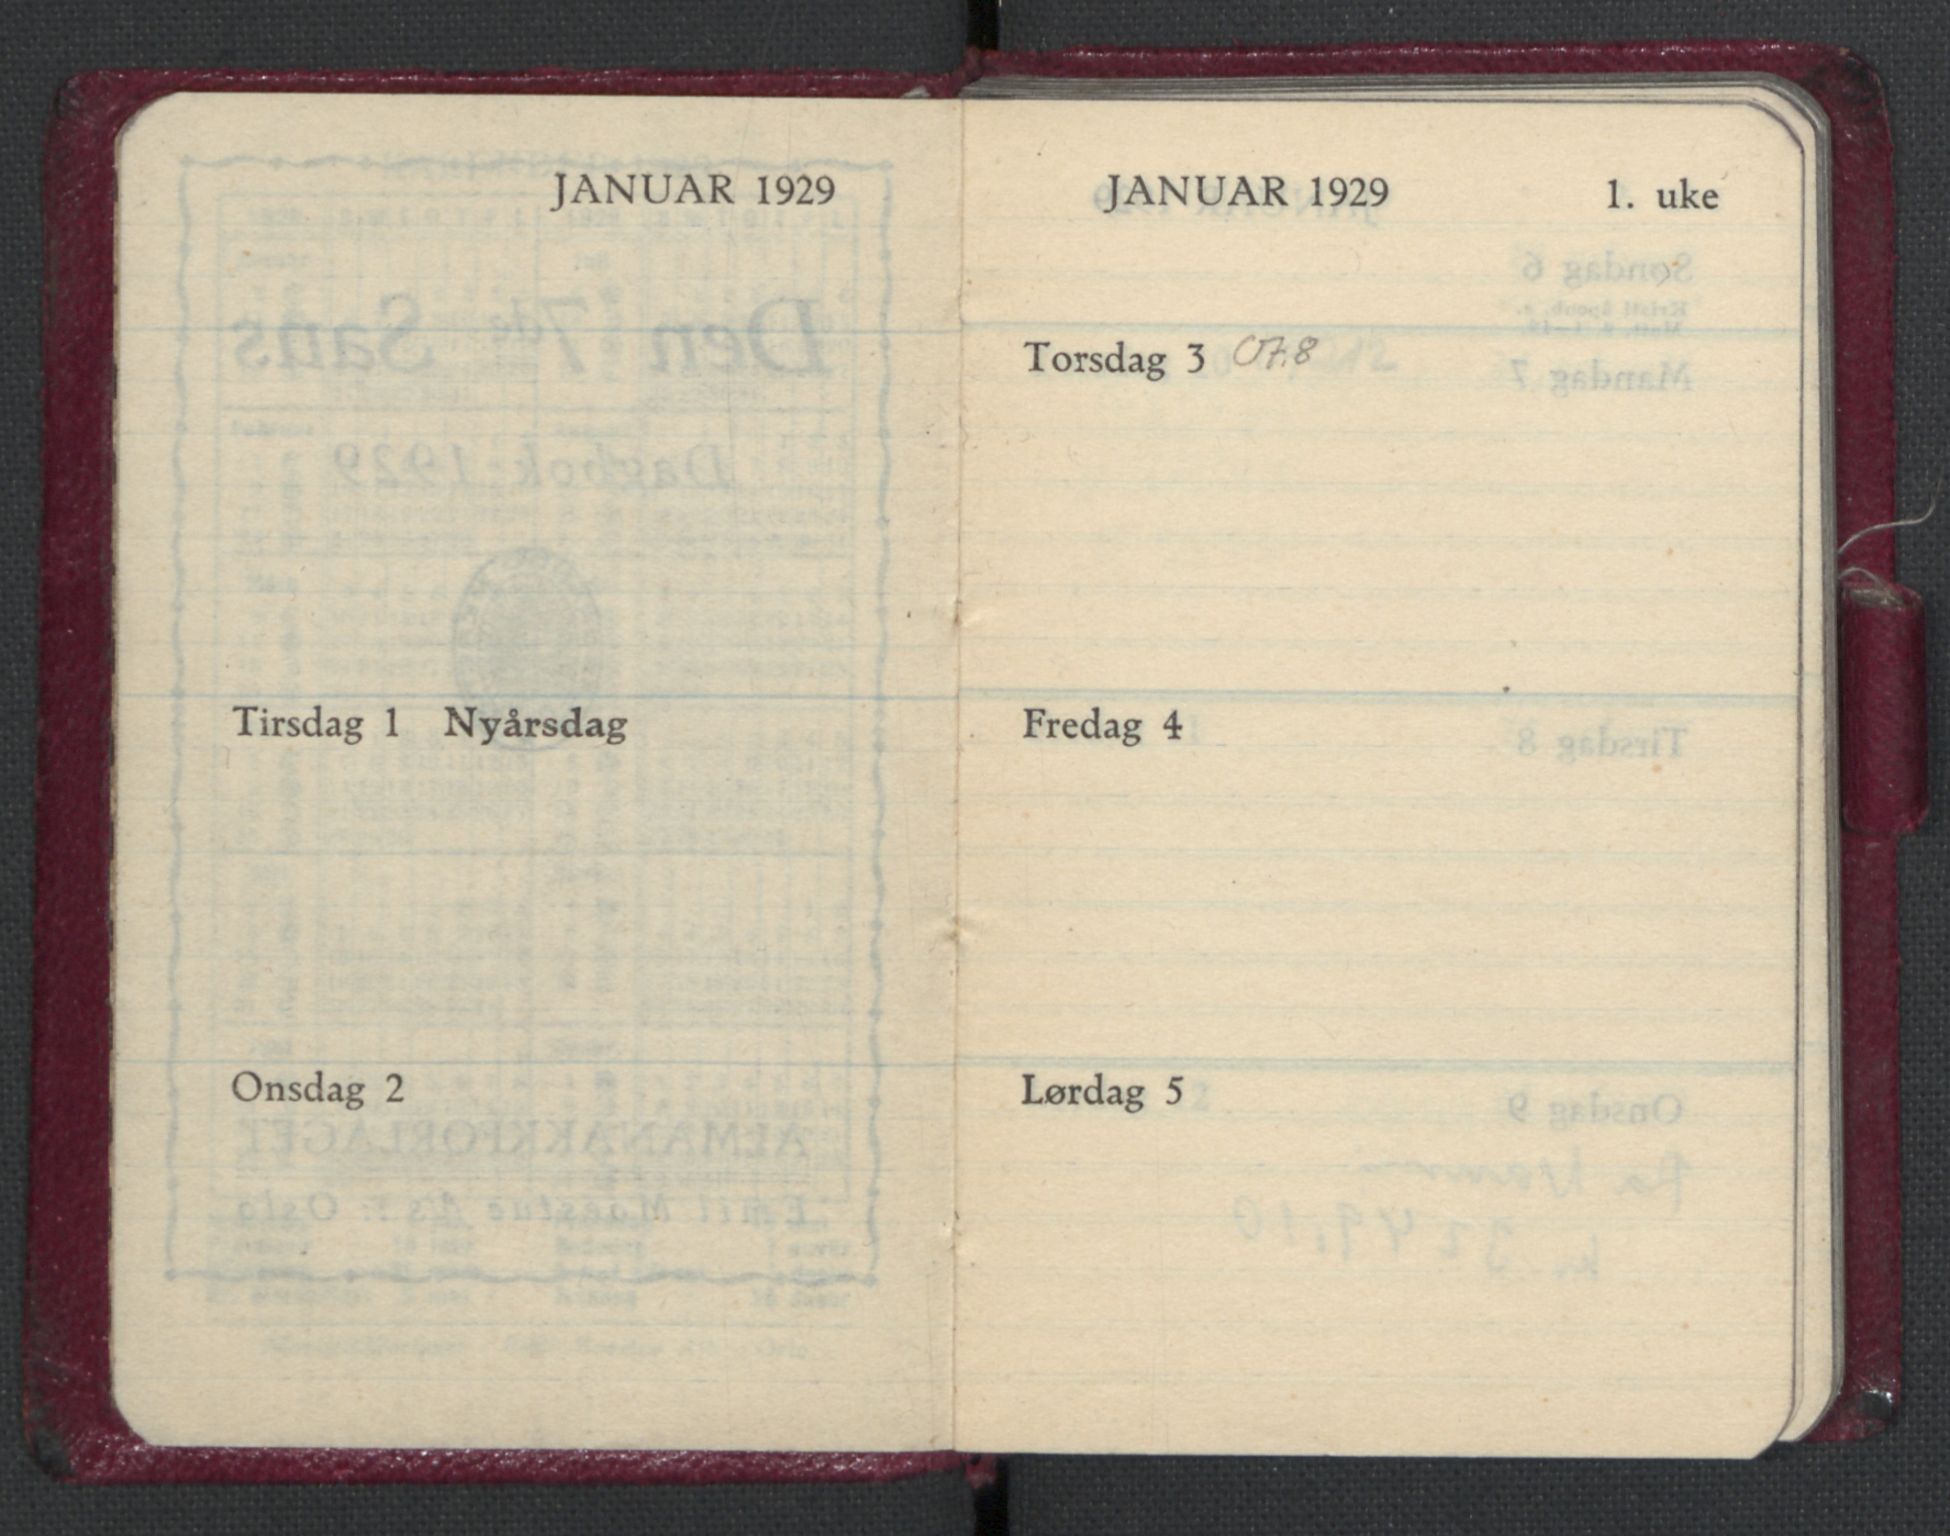 JANUAR 1929
Tirsdag 1 Nyårsdag
Onsdag 2
JANUAR 1929 1. uke
Torsdag 3 07.8
Fredag 4
Lørdag 5